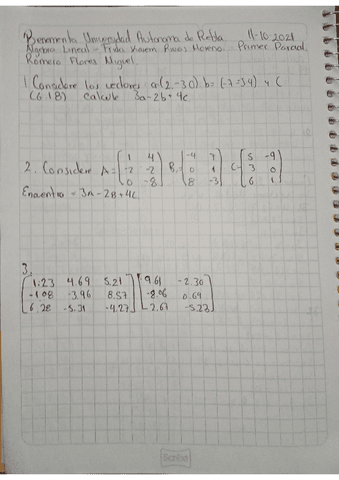 Benemerita Universidad Autonoma de Puebla 11-10-2021
Algebra Lineal - Frida Karem Rivas Moreno - Primer Parcial
Romero Flores Miguel
1. Considere los vectores a(2,-3 0) b=(-7 -3 4) y C
(6 1 8) calcule 3a-2b+4c
2. Considere A= 1 4 B= -4 7 C= 5 -9
-2 -2 0 1 3 0
0 -8 8 -3 6 1
Encuentro = 3A - 2B + 4C
3.
1.23 4.69 5.21 9.61 -2.30
-1.08 -3.96 8.57 -8.06 0.69
6.28 -5.31 -4.27 -2.67 -5.23
Scribe